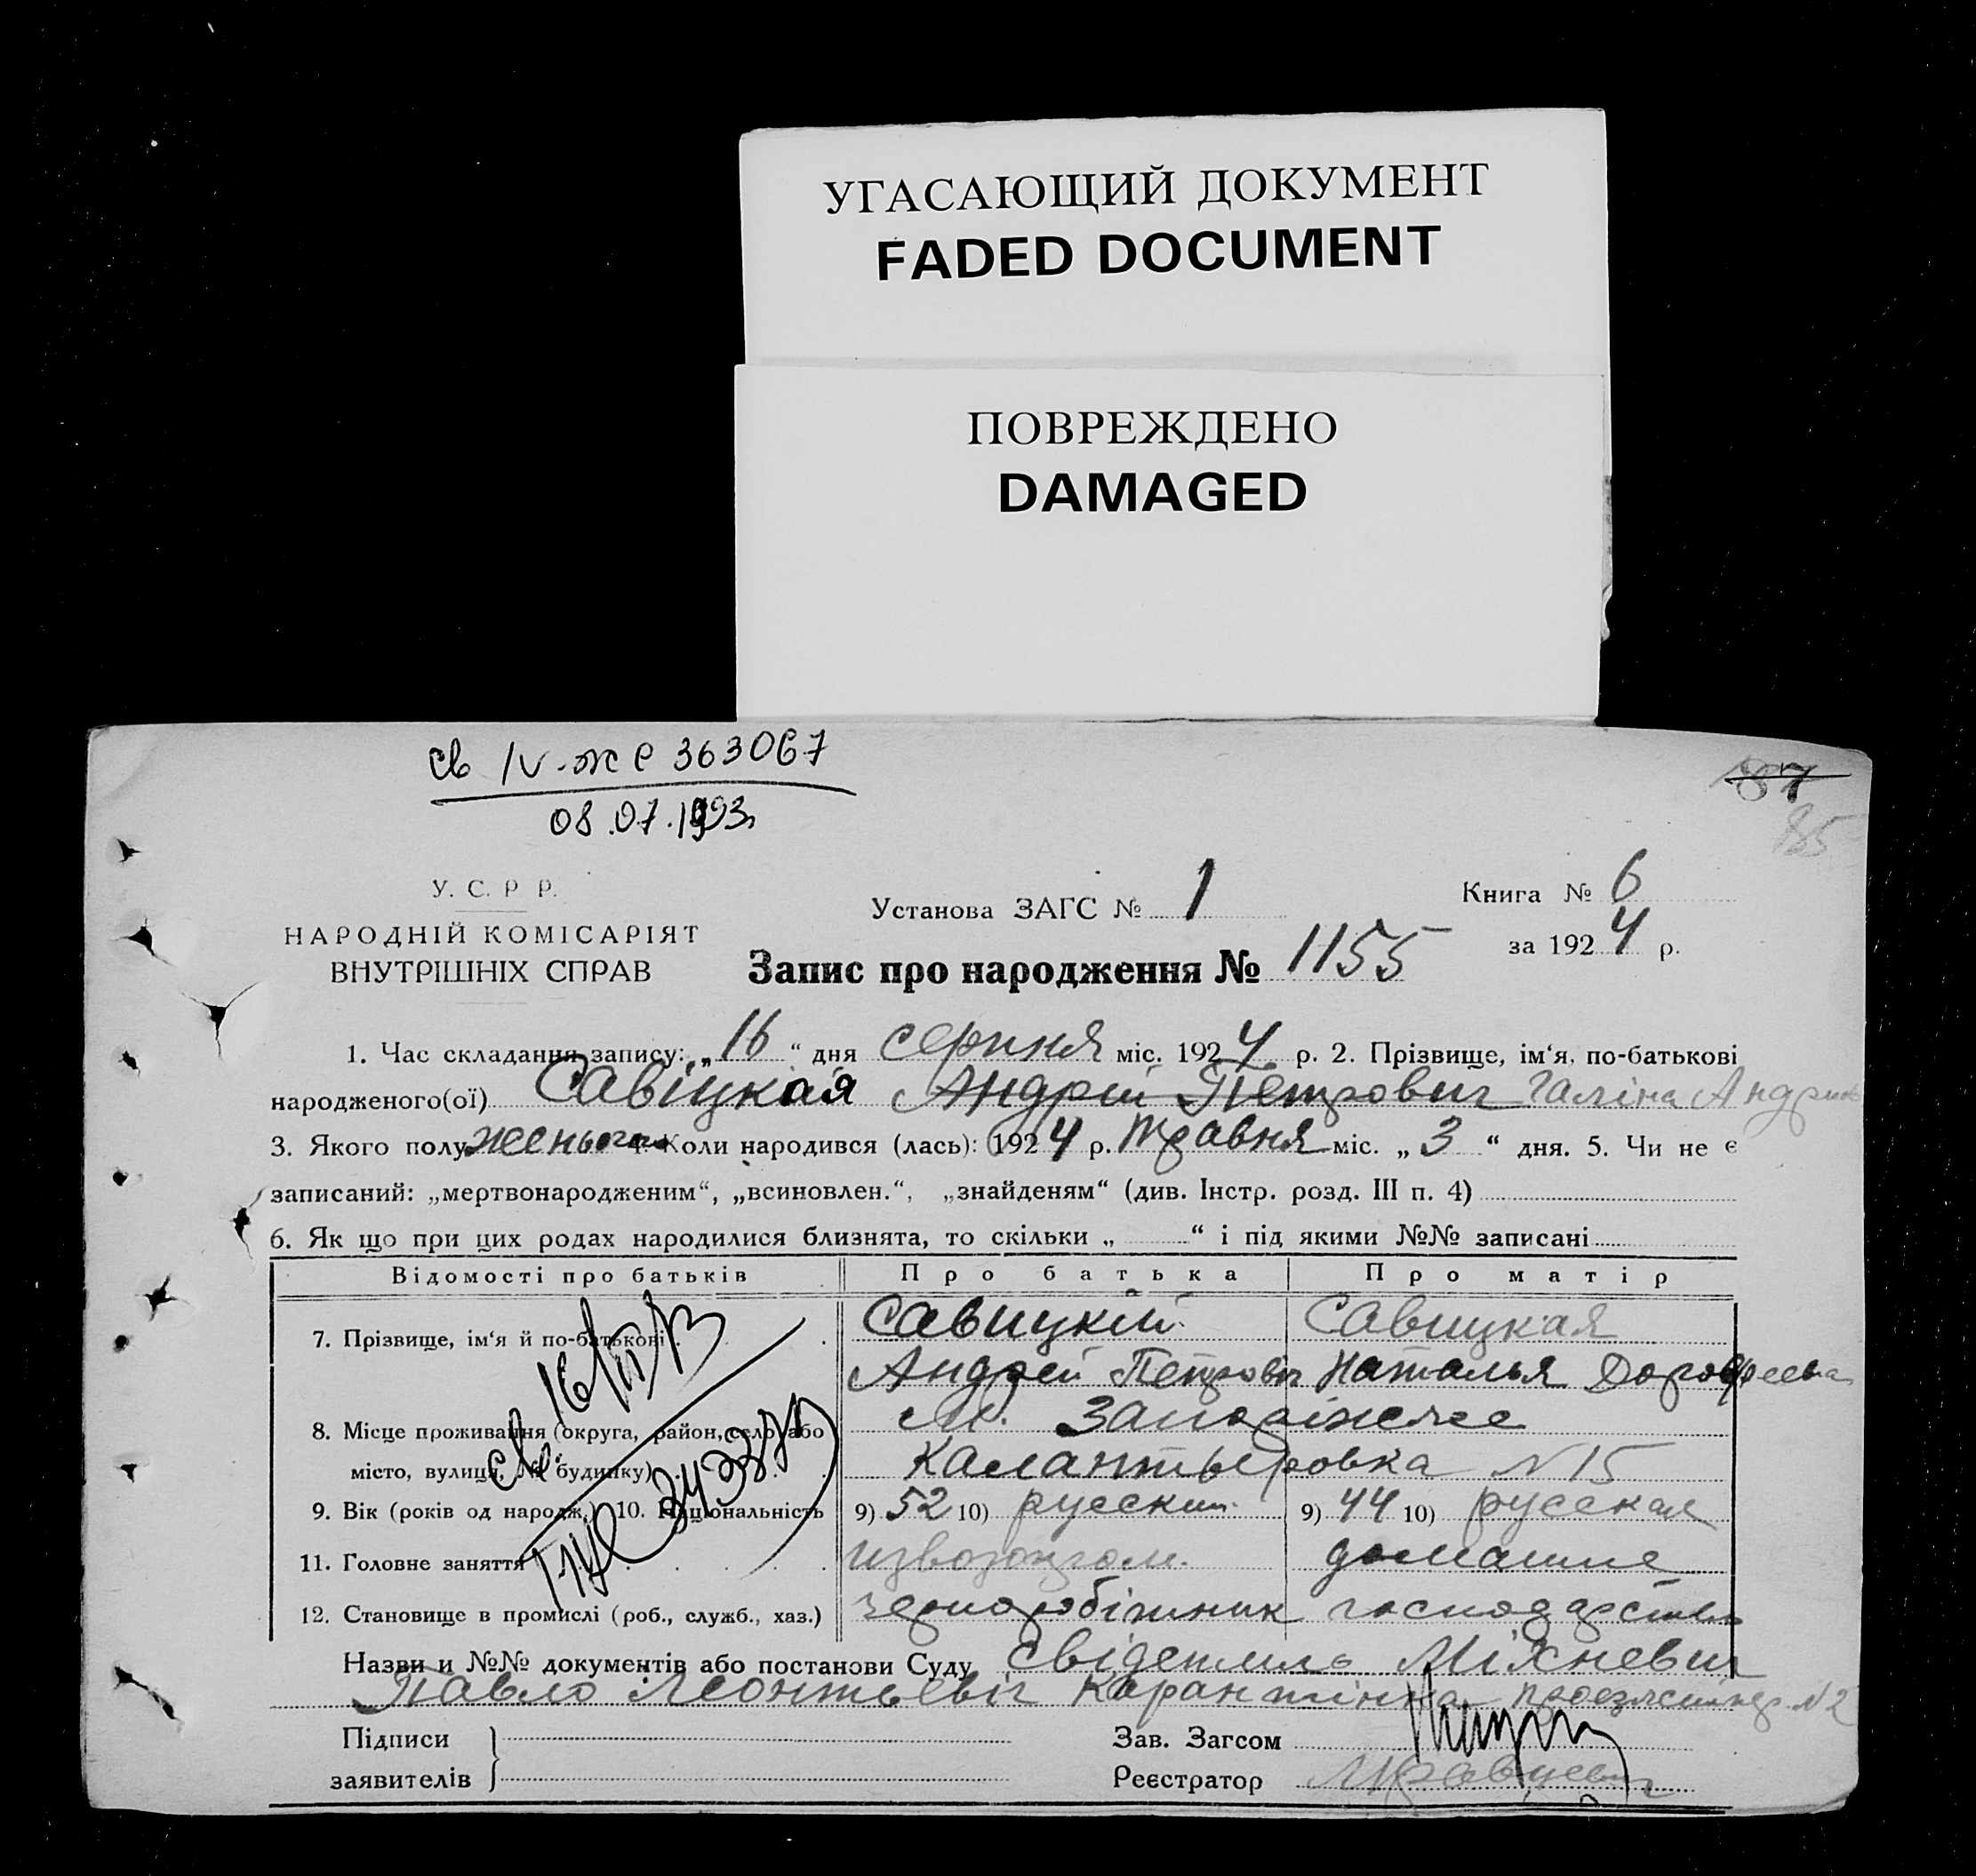 УГАСАЮЩИЙ ДОКУМЕНТ
FADED DOCUMENT
ПОВРЕЖДЕНО
DAMAGED
св IV-ЖС 363067
08.07.1993
87
85
У. С. Р Р.
НАРОДНІЙ КОМІСАРІЯТ
ВНУТРІШНІХ СПРАВ
Установа ЗАГС № 1
Книга № 6
за 1924 р.
Запис про народження № 1155
1. Час складання запису: „16“ дня серпня міс. 1924 р. 2. Прізвище, ім‘я, по-батькові
народженого(ої) Савіцкая Андрій Петрович Галіна
3. Якого полу 4. Коли народився (лась): 1924 р. травня міс. „3“ дня. 5. Чи не є
записаний: „мертвонародженим“, „всиновлен.“, „знайденям“ (див. Інстр. розд. III п. 4)
6. Як що при цих родах народилися близнята, то скільки „ “ і під якими №№ записані
Відомості про батьків Про батька Про матір
7. Прізвище, ім‘я й по-батькові Савицкий Савицкая
Андрей Петровіч Наталья
8. Місце проживання (округа, район, село або М.
місто, вулиця, № будинку) N 15
9. Вік (років од народж.) 10. Національність 9) 52 10) русский 9) 44 10) русская
11. Головне заняття домашне
12. Становище в промислі (роб., служб., хаз.) черноробітник господарство
Назви и №№ документів або постанови Суду Міхневич
Павло Леонтьевіч N 2
Підписи
заявителів
Зав. Загсом
Реєстратор